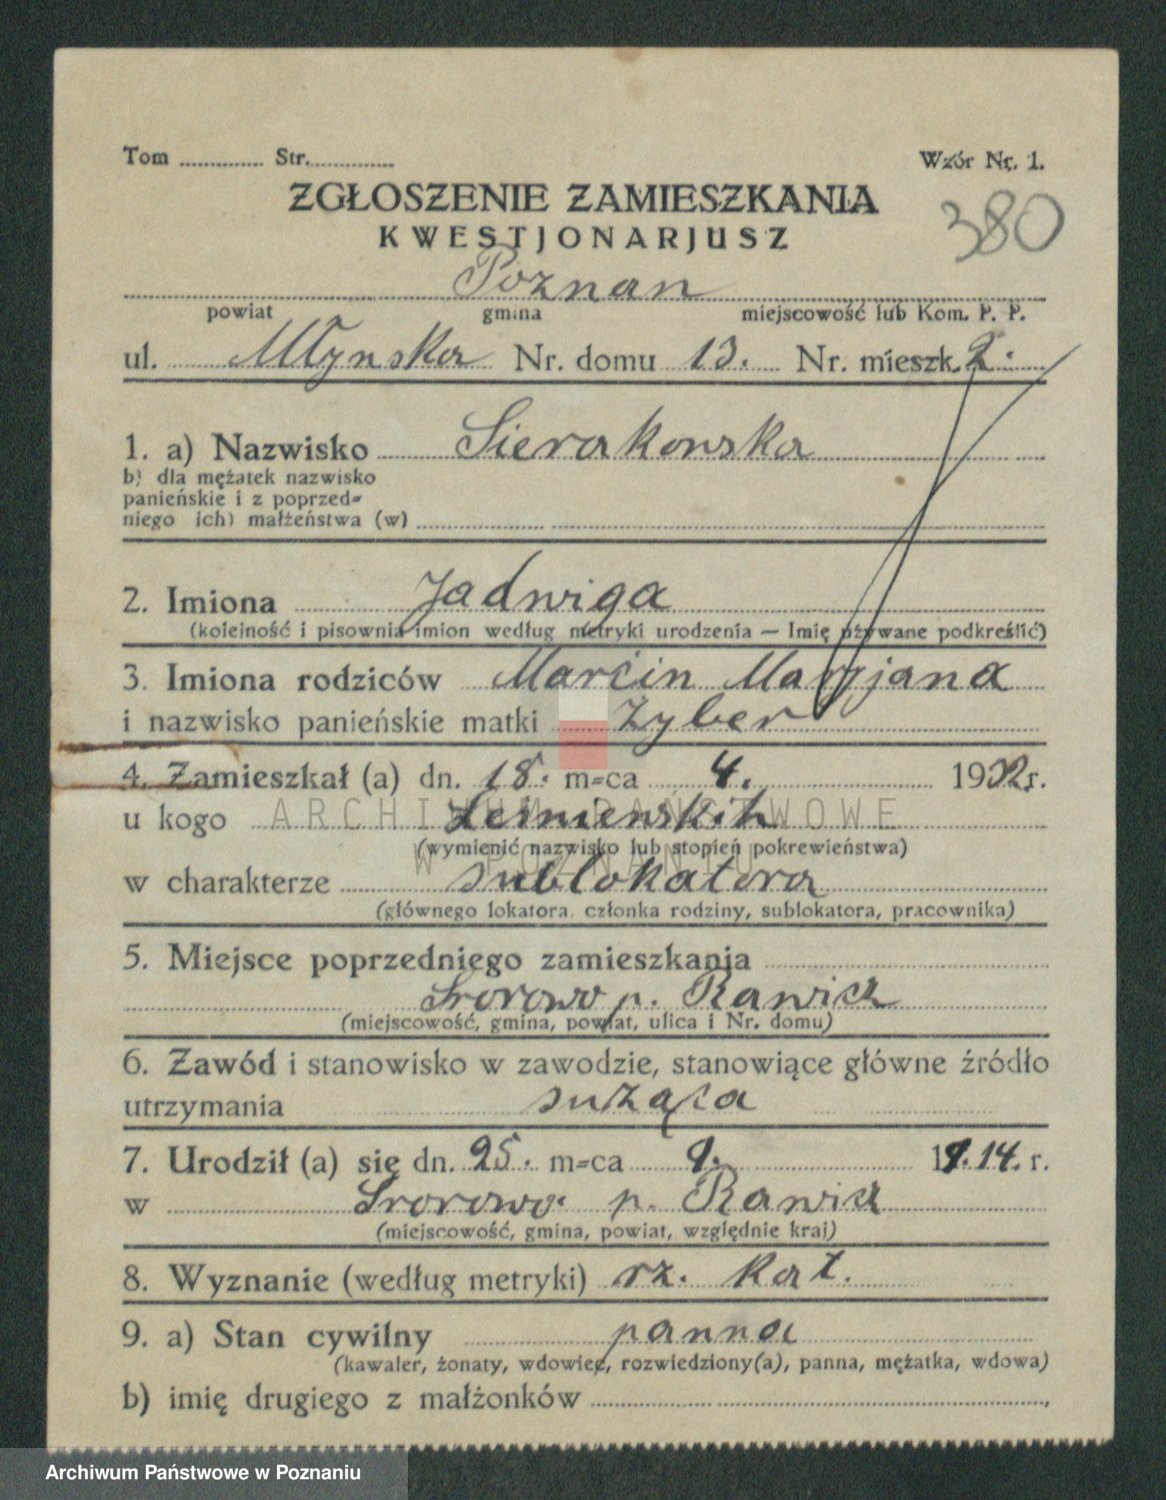 Tom ............. Str..............
Wzór Nr. 1.
ZGŁOSZENIE ZAMIESZKANIA
380
KWESTJONARJUSZ
Poznan
powiat gmina miejscowość lub Kom. P. P.
ul. Młynska Nr. domu 13. Nr. mieszk. 2.
1. a) Nazwisko Sierakowska
b) dla mężatek nazwisko
panieńskie i z poprzed-
niego ich) małżeństwa (w)
2. Imiona Jadwiga
(kolejność i pisownia imion według metryki urodzenia — Imię używane podkreślić)
3. Imiona rodziców Marcin Maryjana
i nazwisko panieńskie matki Zyber
4. Zamieszkał (a) dn. 18. m-ca 4. 1932 r.
ARCHIWUM PAŃSTWOWE
u kogo
(wymienić nazwisko lub stopień pokrewieństwa)
W POZNANIU
w charakterze sublokatora
(głównego lokatora, członka rodziny, sublokatora, pracownika)
5. Miejsce poprzedniego zamieszkania
p. Rawicz
(miejscowość, gmina, powiat, ulica i Nr. domu)
6. Zawód i stanowisko w zawodzie, stanowiące główne źródło
utrzymania służąca
7. Urodził (a) się dn. 25. m-ca 9. 1914. r.
w p. Rawicz
(miejscowość, gmina, powiat, względnie kraj)
8. Wyznanie (według metryki) rz. kat.
9. a) Stan cywilny panna
(kawaler, żonaty, wdowiec, rozwiedziony(a), panna, mężatka, wdowa)
b) imię drugiego z małżonków
Archiwum Państwowe w Poznaniu